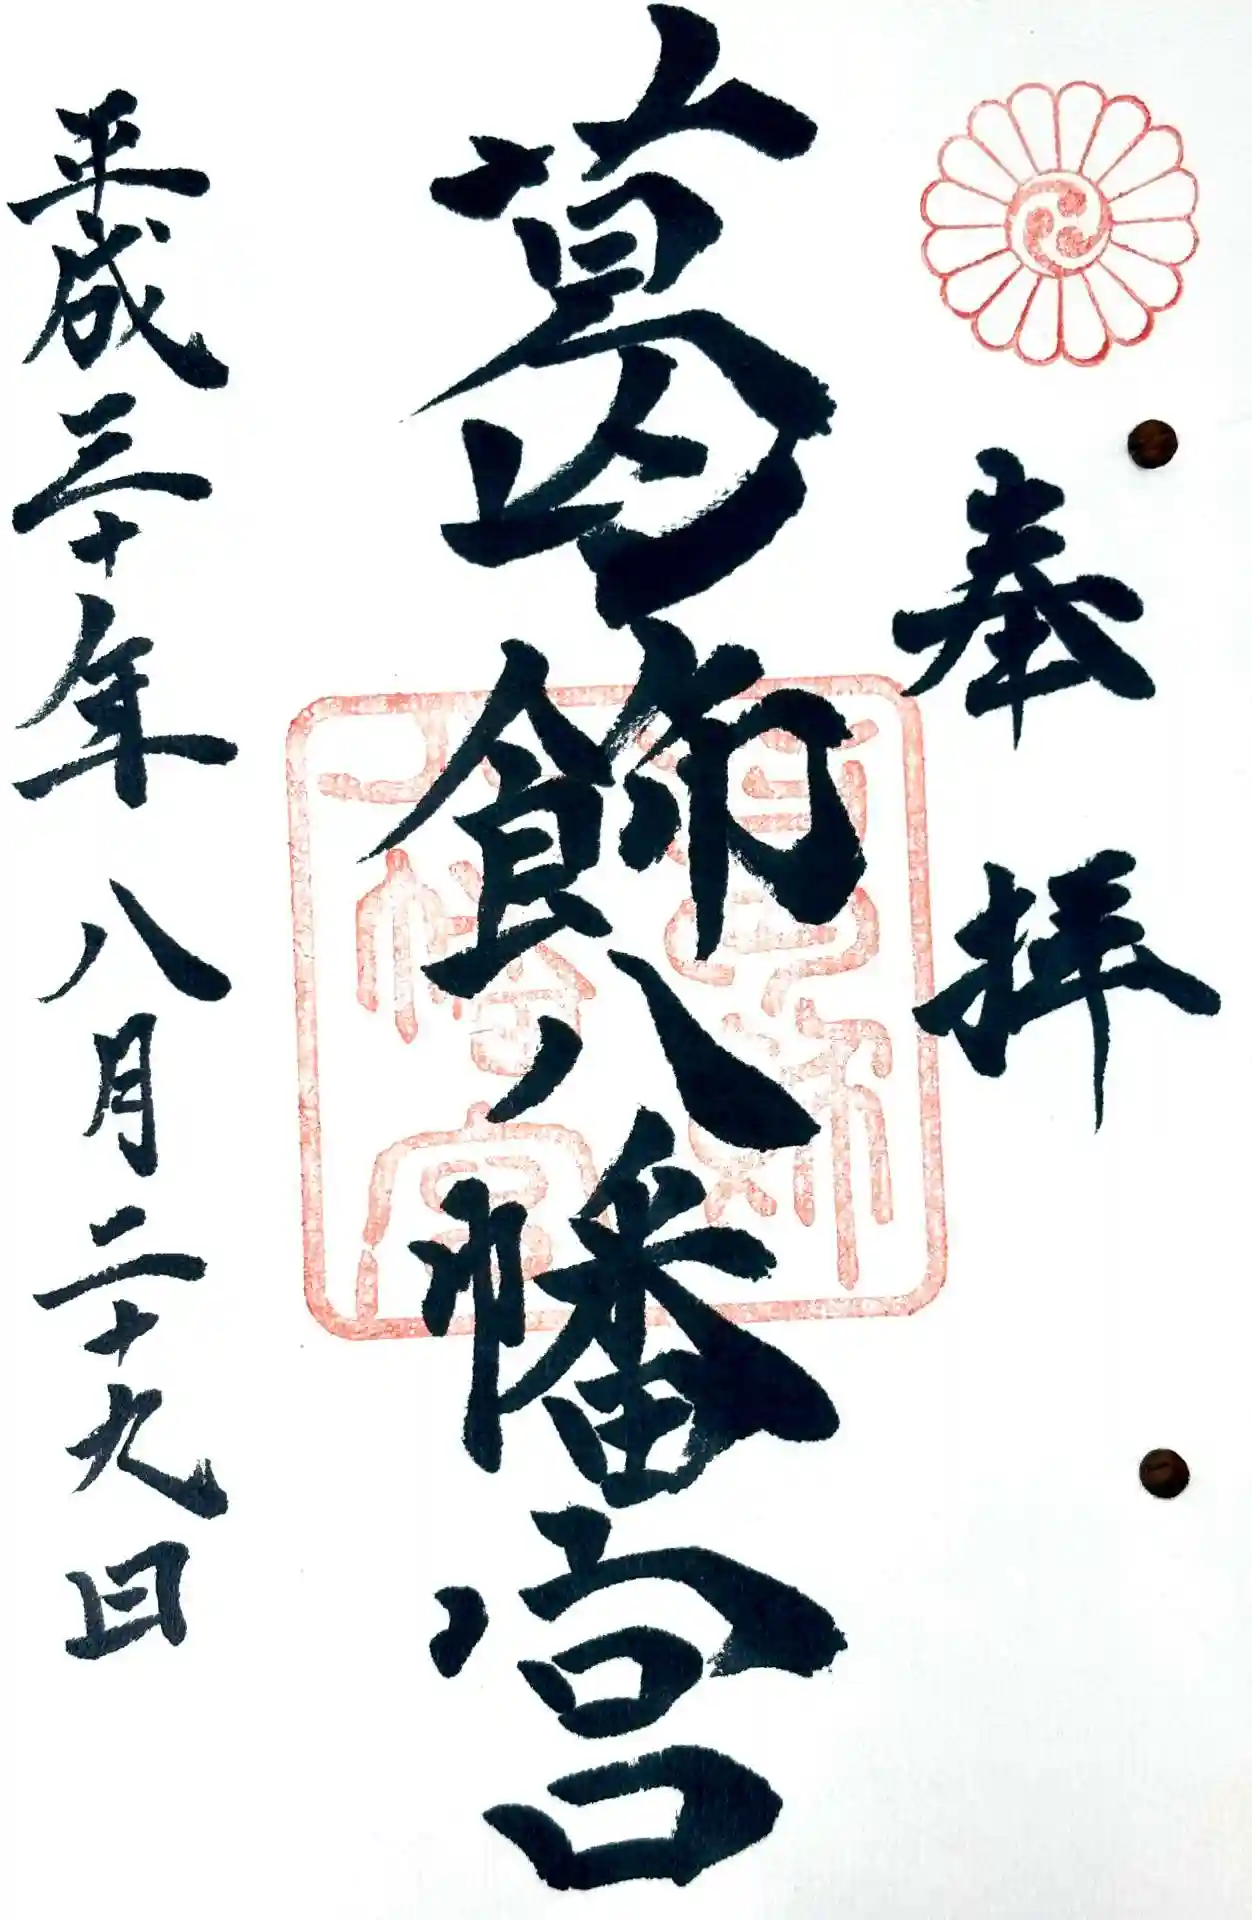 奉拝
葛飾八幡宮
葛飾
八幡宮
平成三十年八月二十九日